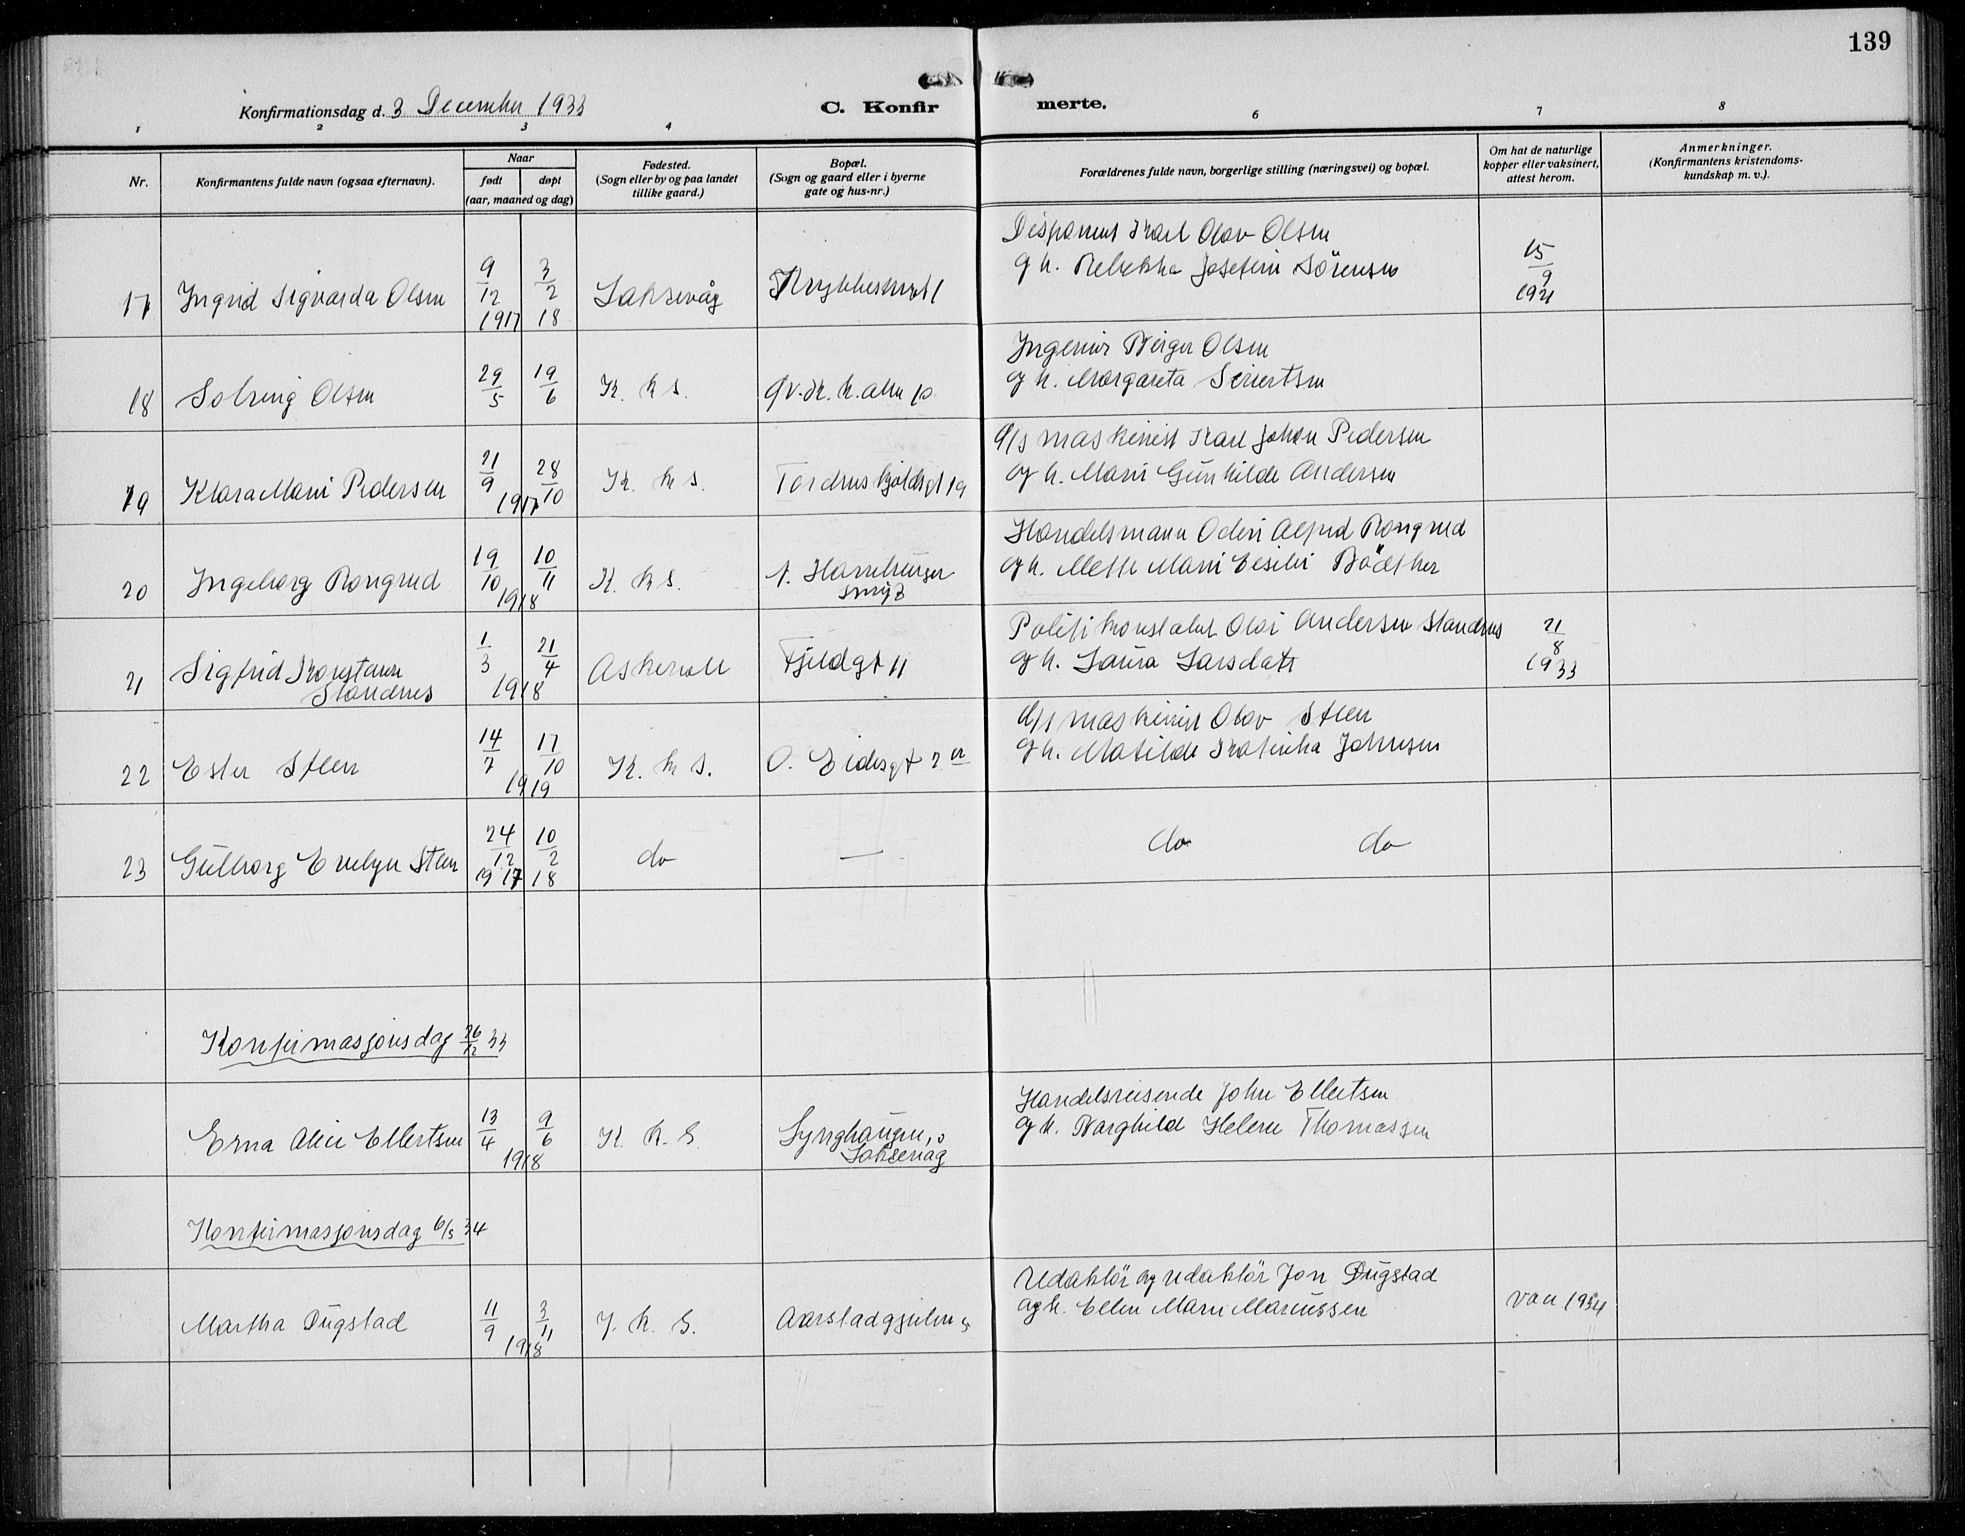 139
Konfirmationsdag d. 3 December 1933
C. Konfirmerte.
1 2 3 4 6 7 8
Nr.
Konfirmantens fulde navn (ogsaa efternavn).
Naar
født døpt
(aar, maaned og dag)
Fødested.
(Sogn eller by og paa landet
tillike gaard.)
Bopæl.
(Sogn og gaard eller i byerne
gate og hus-nr.)
Forældrenes fulde navn, borgerlige stilling (næringsvei) og bopæl.
Om hat de naturlige
kopper eller vaksinert,
attest herom.
Anmerkninger.
(Konfirmantens kristendoms-
kundskap m. v.).
17 Ingrid Sigvarda Olsen 9/12 1917 3/2 18 Laksevåg
Disponent Karl Olav Olsen
og h. Rebekka Josefine Sörensen
15/9 1921
18 Solveig Olsen 29/5 19/6 K. k s.
Ingeniör Birger Olsen
og h. Margareta Seivertsen
19 Klara Marie Pedersen 21/9 28/10 1917 K. k s. Tordenskjoldsgt 19
d/s maskinist Karl Johan Pedersen
og h. Marie Gunhilde Andersen
20 Ingeborg Rongved 19/10 10/11 1918 K. k s. N. Hamburger
smug
Handelsmann Odin Alfred Rongved
og h. Mette Marie Cecilie Bödtker
21 Sigfrid Konstanse
Standnes 1/3 21/4 1918 Askevoll Fjeldgt 11
Politikonstabel Olai Andersen Standnes
og h. Laura Larsdatt
21/8 1933
22 Ester Steen 14/7 17/10 1919 K. k s.
d/s maskinist Olav Steen
og h. Matilde Katinka Johnsen
23 Gulborg Evelyn Steen 24/12 1917 10/2 18 do —
do do
Konfirmasjonsdag 26/12 33
Erna Alice Ellertsen 13/4 9/6 1918 K. k. S Lynghaugen,
Laksevåg
Handelsreisende John Ellertsen
og h. Borghild Helene Thomassen
Konfirmasjonsdag 6/5 34
Martha Dugstad 11/9 3/11 1918 J. K. S. Aarstadgjeilen 5
Redaktör og redaktör Jon Dugstad
og h. Ellen Marie Mariussen
vac 1934